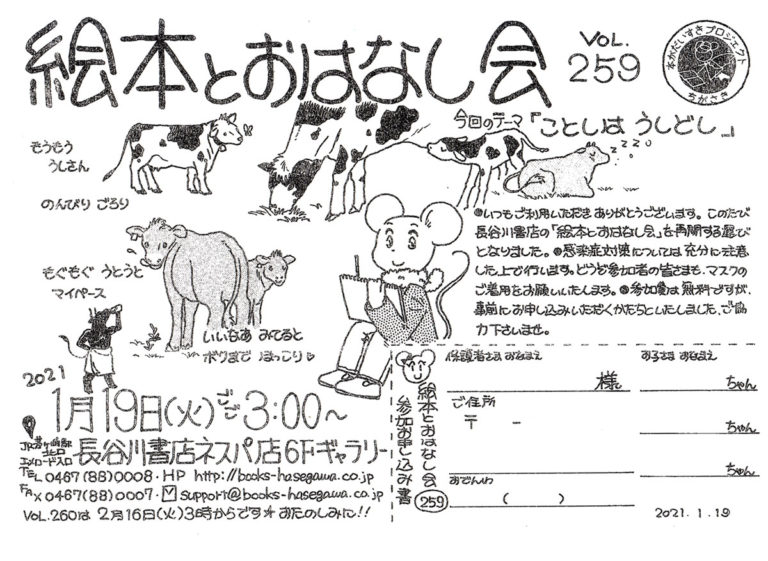 絵本とおはなし会
VOL.
259
本がだいすきプロジェクト
ちがさき
今回のテーマ「ことしは うしどし」
zzzo
もうもう
うしさん
のんびり ごろり
もぐもぐ うとうと
マイペース
いいなあ みてると
ボクまで ほっこり♡
●いつもご利用いただきありがとうございます。このたび
長谷川書店の「絵本とおはなし会」を再開する運び
となりました。●感染症対策については充分に注意
した上で行います。どうぞ参加者の皆さまも、マスクの
ご着用をお願いいたします。●参加費は無料ですが、
事前にお申し込みいただくかたちといたしました、ご協
力下さいませ。
2021
1月19日(火)ごご3:00〜
JR茅ヶ崎駅
北口
エメロード入口
長谷川書店ネスパ店6Fギャラリー
TEL 0467(88)0008・HP http://books-hasegawa.co.jp
FAX 0467(88)0007・ support@books-hasegawa.co.jp
VOL.260は 2月16日(火)3時からです*おたのしみに!!
絵本とおはなし会
参加お申し込み書
259
保護者さま おなまえ
様
ご住所
〒 -
おでんわ
( )
お子さま おなまえ
ちゃん
ちゃん
ちゃん
2021.1.19